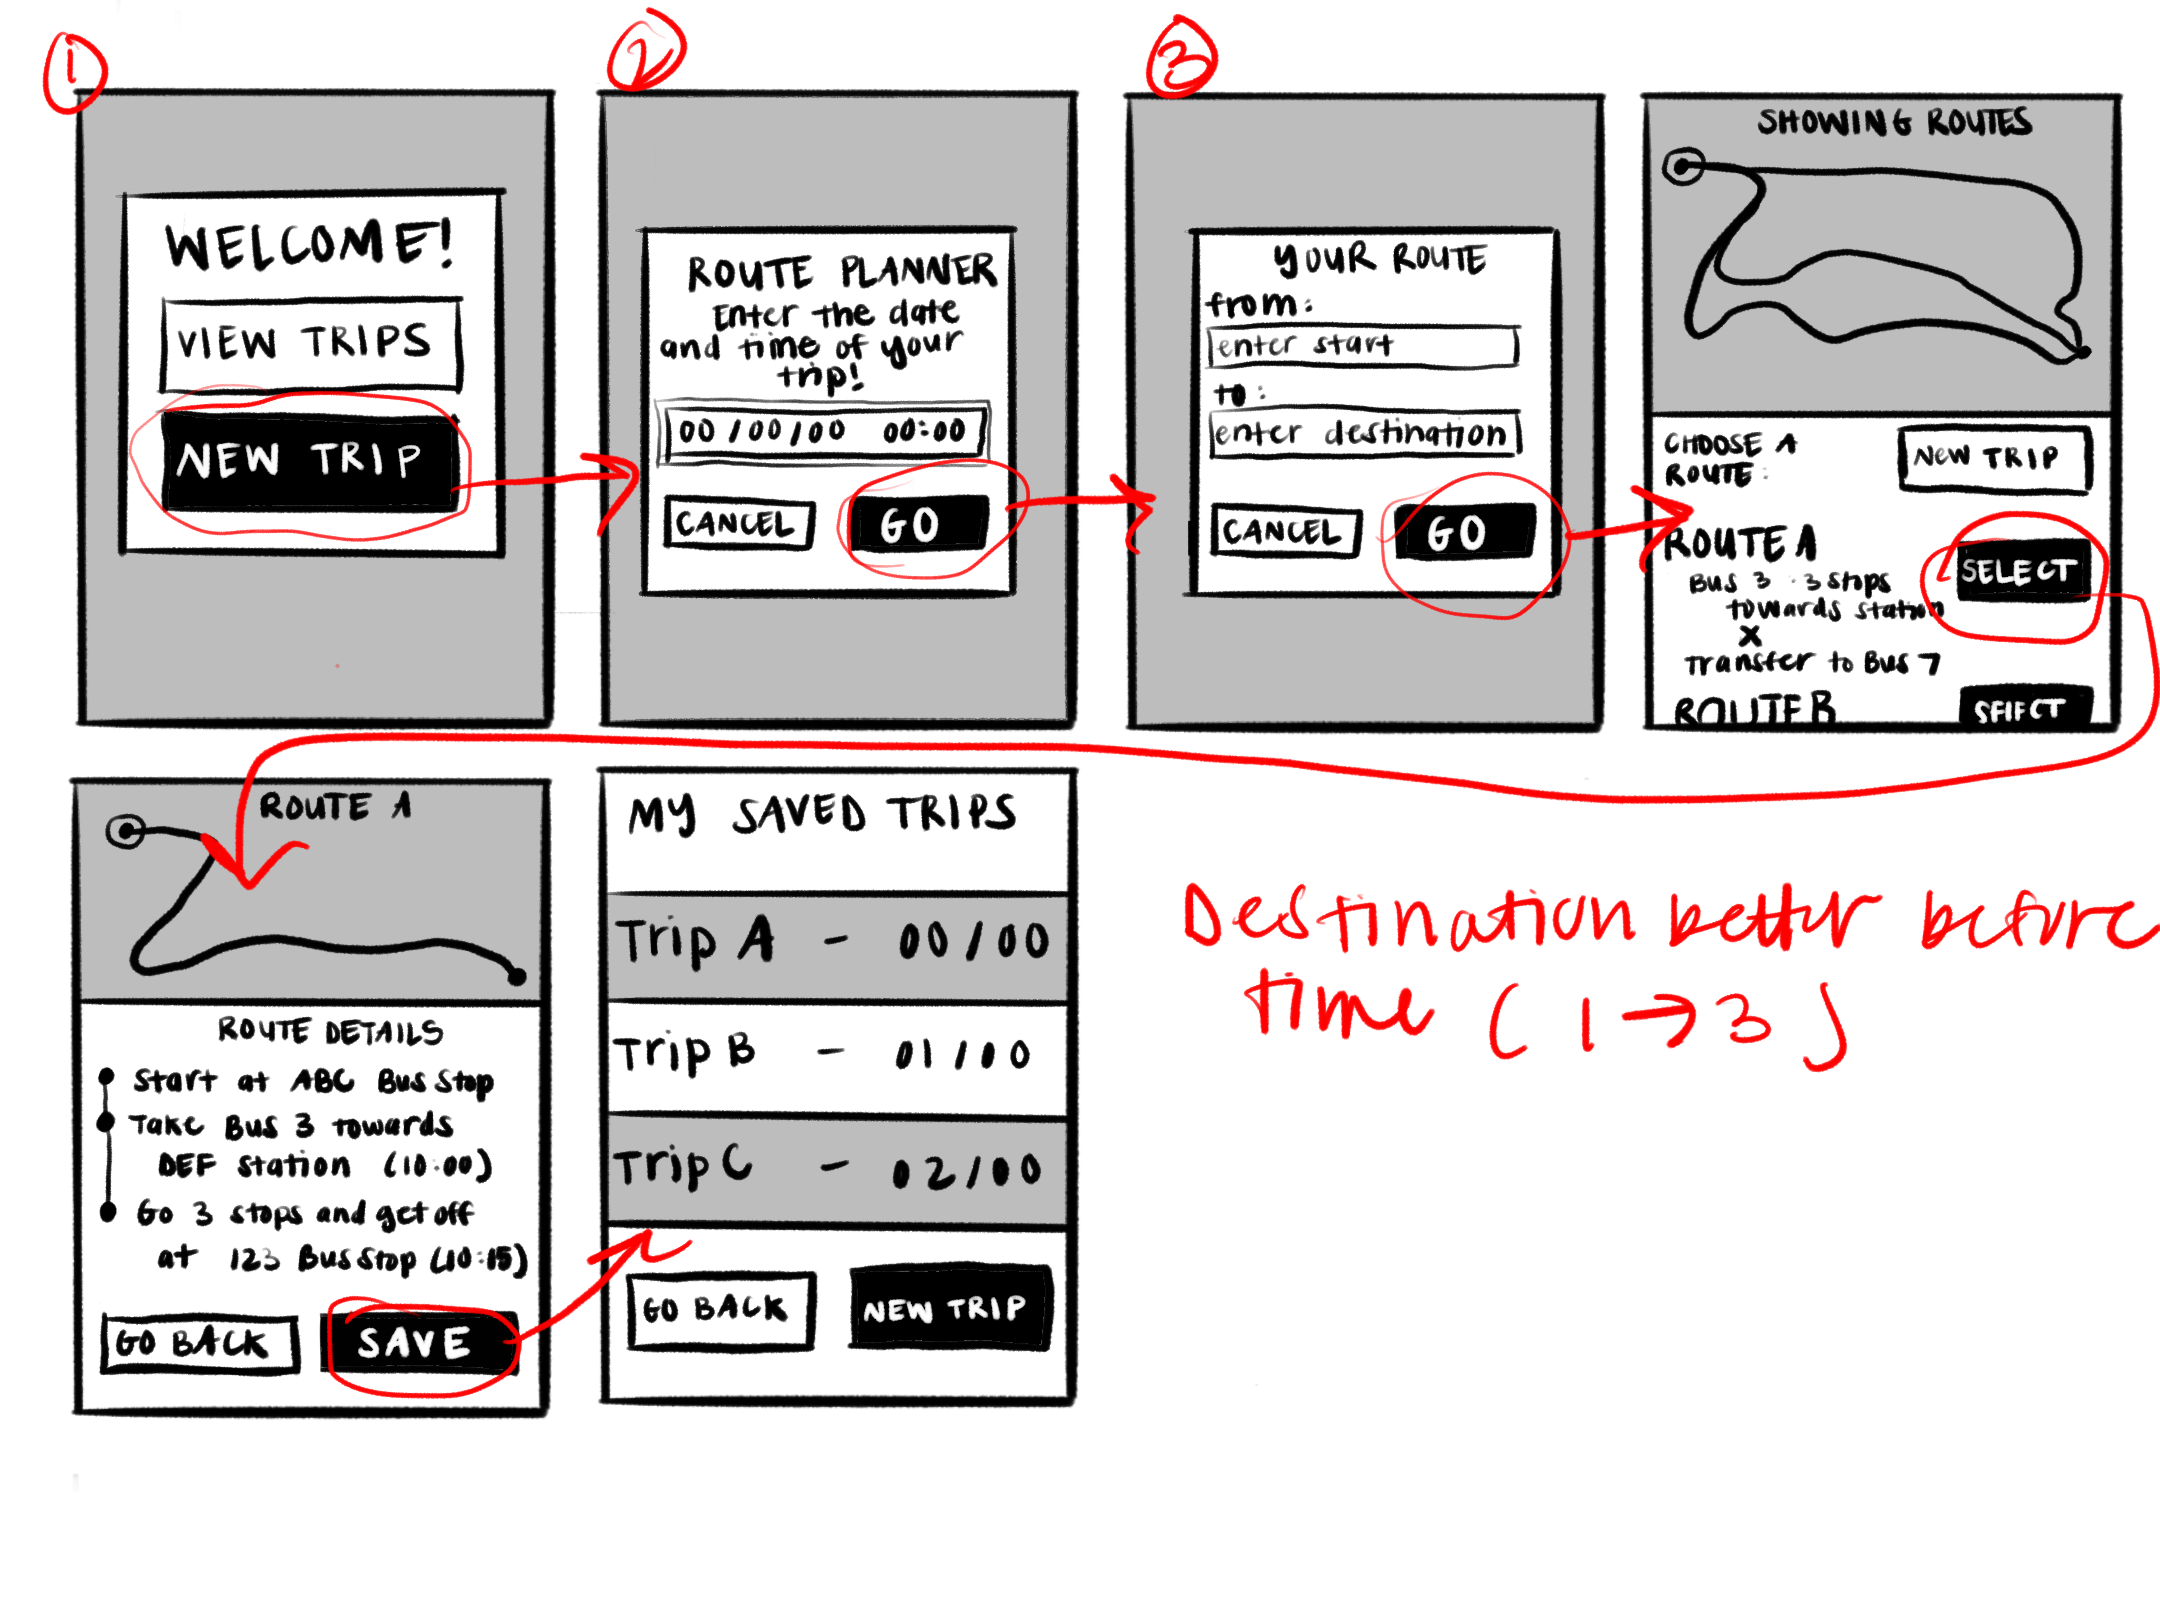 1
2
3
WELCOME!
VIEW TRIPS
NEW TRIP
ROUTE PLANNER
Enter the date
and time of your
trip!
00/00/00 00:00
CANCEL
GO
YOUR ROUTE
from:
enter start
to:
enter destination
CANCEL
GO
SHOWING ROUTES
CHOOSE A
ROUTE:
NEW TRIP
ROUTE A
SELECT
Bus 3 · 3 stops
towards station
X
Transfer to Bus 7
ROUTE B
SELECT
ROUTE A
ROUTE DETAILS
Start at ABC Bus Stop
Take Bus 3 towards
DEF Station (10:00)
Go 3 stops and get off
at 123 Bus Stop (10:15)
GO BACK
SAVE
MY SAVED TRIPS
Trip A - 00/00
Trip B - 01/00
Trip C - 02/00
GO BACK
NEW TRIP
Destination better before
time (1→3)